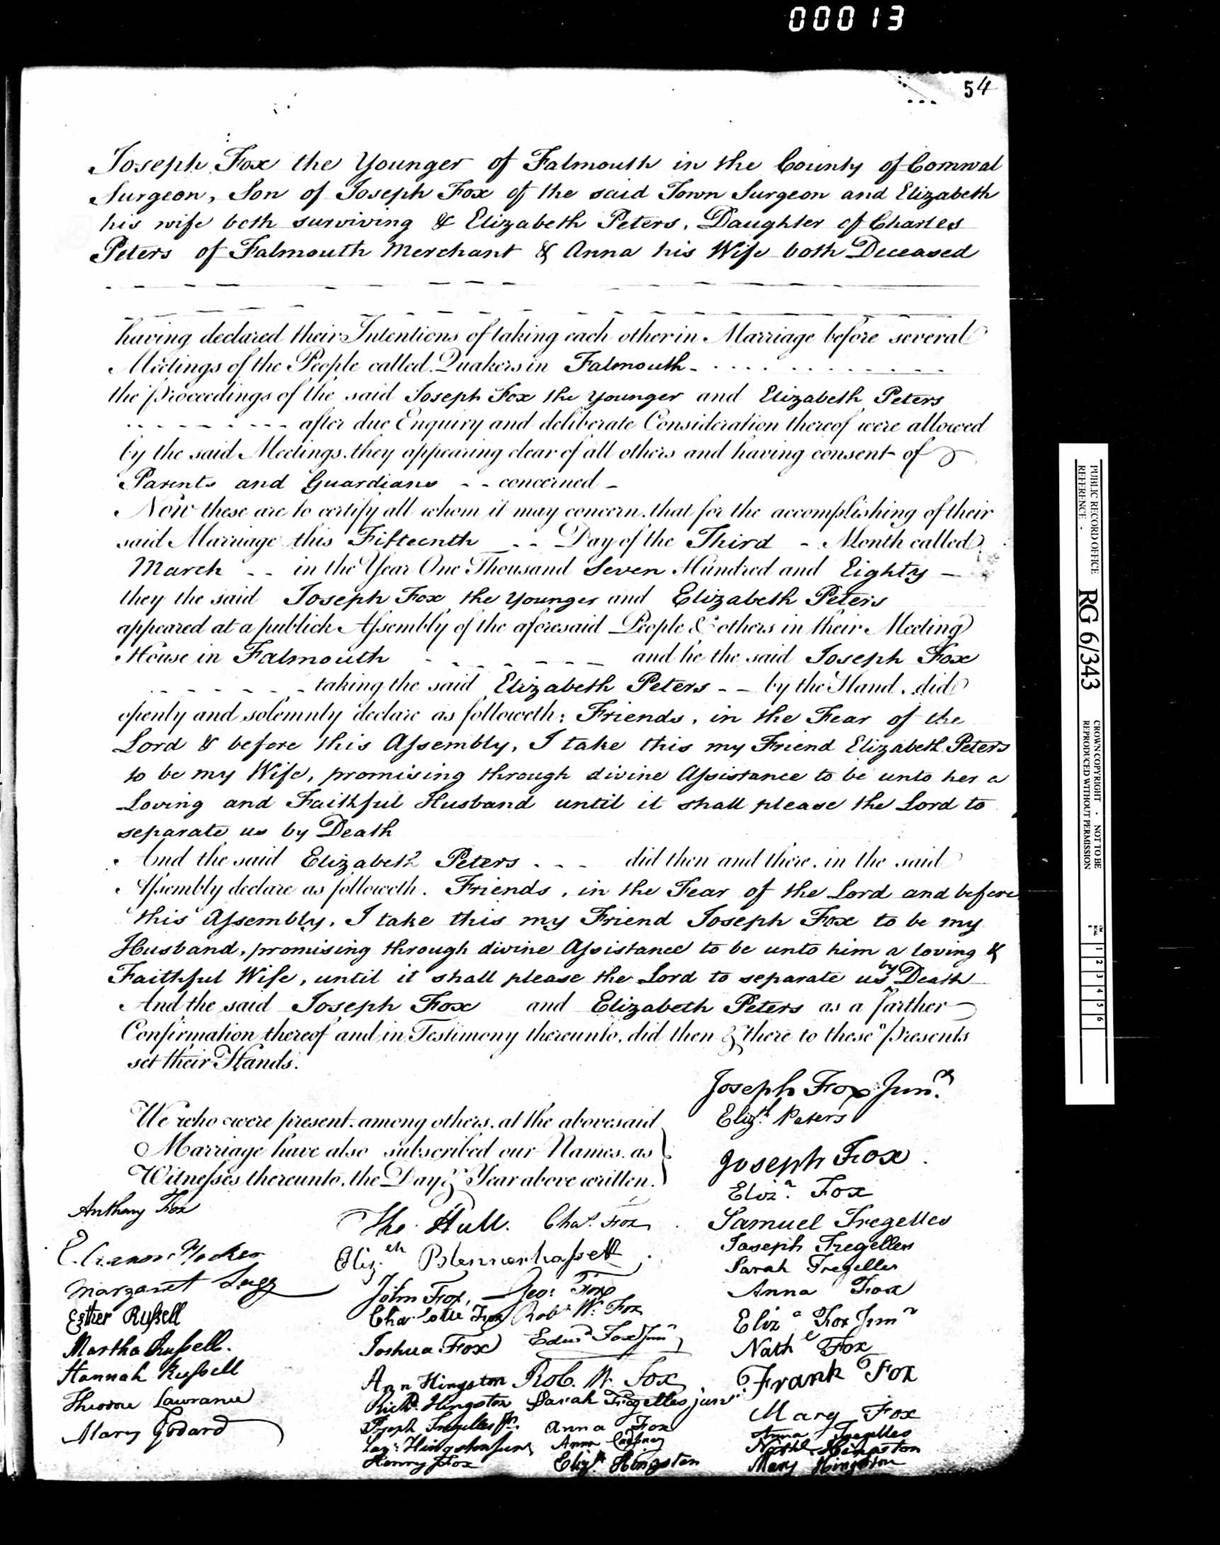 00013
54
Joseph Fox the Younger of Falmouth in the County of Cornwal
Surgeon, Son of Joseph Fox of the said Town Surgeon and Elizabeth
his wife both surviving & Elizabeth Peters, Daughter of Charles
Peters of Falmouth Merchant & Anna his Wife both Deceased
having declared their Intentions of taking each other in Marriage before several
Meetings of the People called Quakers in Falmouth
the Proceedings of the said Joseph Fox the Younger and Elizabeth Peters
after due Enquiry and deliberate Consideration thereof were allowed
by the said Meetings, they appearing clear of all others and having consent of
Parents and Guardians concerned
Now these are to certify all whom it may concern, that for the accomplishing of their
said Marriage this Fifteenth Day of the Third Month called
March in the Year One Thousand Seven Hundred and Eighty
they the said Joseph Fox the Younger and Elizabeth Peters
appeared at a publick Assembly of the aforesaid People & others in their Meeting
House in Falmouth and he the said Joseph Fox
taking the said Elizabeth Peters by the Hand, did
openly and solemnly declare as followeth; Friends, in the Fear of the
Lord & before this Assembly, I take this my Friend Elizabeth Peters
to be my Wife, promising through divine Assistance to be unto her a
Loving and Faithful Husband until it shall please the Lord to
separate us by Death
And the said Elizabeth Peters did then and there, in the said
Assembly declare as followeth. Friends, in the Fear of the Lord and before
this Assembly, I take this my Friend Joseph Fox to be my
Husband, promising through divine Assistance to be unto him a loving &
Faithful Wife, until it shall please the Lord to separate us by Death
And the said Joseph Fox and Elizabeth Peters as a farther
Confirmation thereof and in Testimony thereunto, did then & there to these Presents
set their Hands.
Joseph Fox Junr.
Elizth. Peters
We who were present, among others, at the abovesaid
Marriage have also subscribed our Names, as
Witnesses thereunto, the Day & Year above written.
Joseph Fox.
Eliza. Fox
Samuel Tregelles
Joseph Tregelles
Sarah Tregelles
Anna Fox
Eliza Fox Junr
Nathl Fox
Frank Fox
Mary Fox
Anna Tregelles
Nathl Hingston
Mary Hingston
Anthony Fox
Margaret Lugg
Esther Russell
Martha Russell.
Hannah Russell
Lawrance
Mary Godard
Tho Hull.
Elizeth Blennerhassett
John Fox,
Charlotte Fox
Joshua Fox
Ann Hingston
Richd. Hingston
Joseph Tregelles Jr.
Henry Fox
Chas. Fox
Geo: Fox
Robt W. Fox
Edwd Fox Junr
Rob. W. Fox
Sarah Tregelles junr
Anna Fox
Elizth. Hingston
PUBLIC RECORD OFFICE
REFERENCE
RG 6/343
CROWN COPYRIGHT - NOT TO BE
REPRODUCED WITHOUT PERMISSION
1 2 3 4 5 6